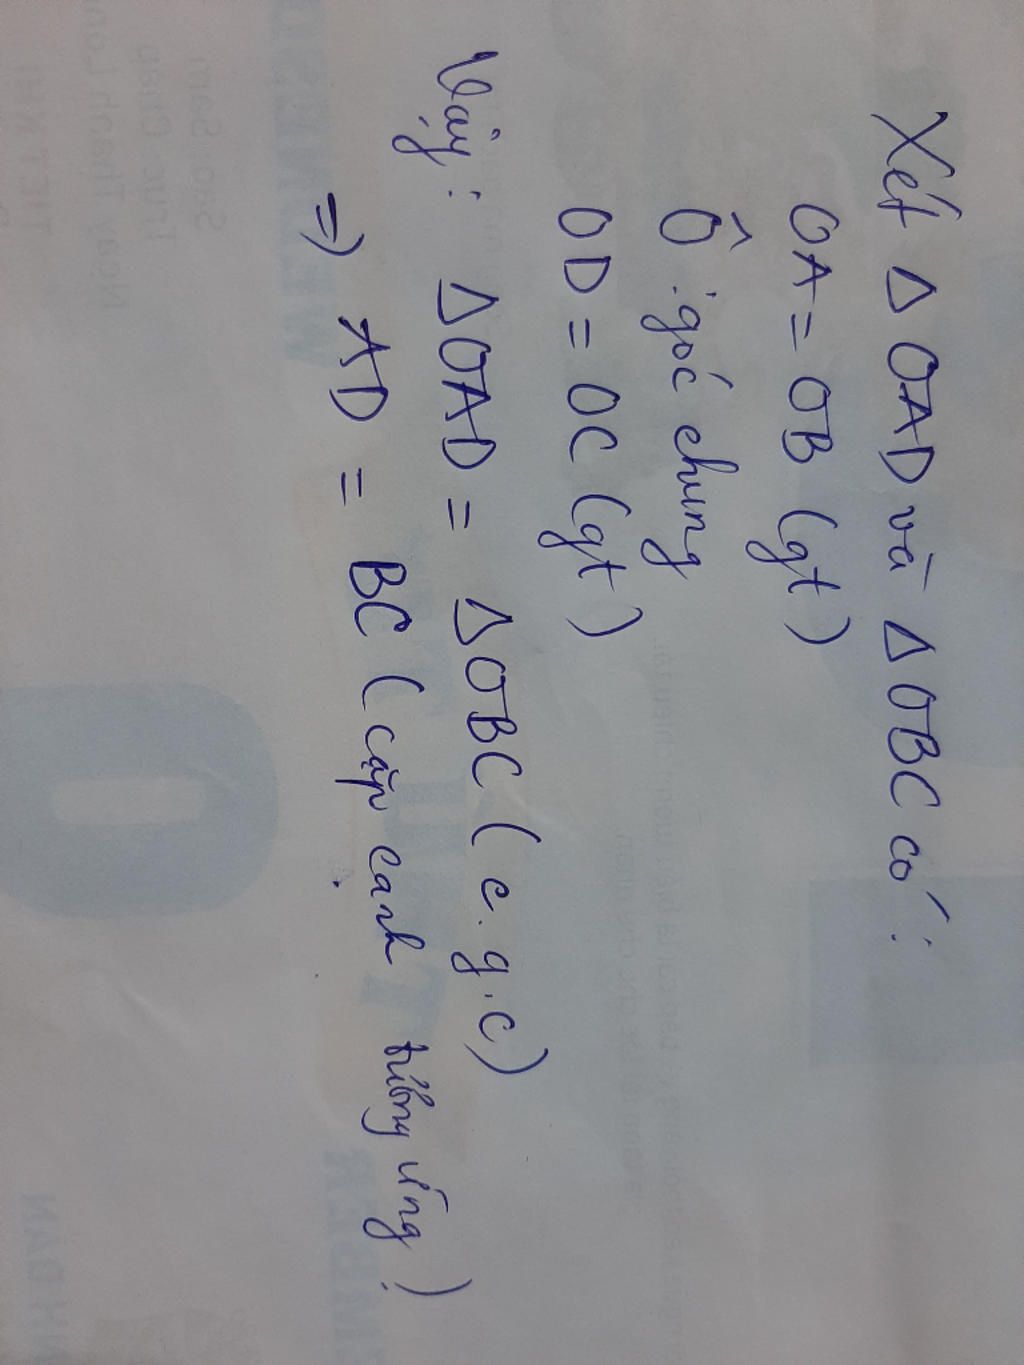 Xét Δ OAD và Δ OBC có:
OA = OB (gt)
Ô : góc chung
OD = OC (gt)
Vậy: ΔOAD = ΔOBC (c.g.c)
=) AD = BC (cặp cạnh tương ứng)